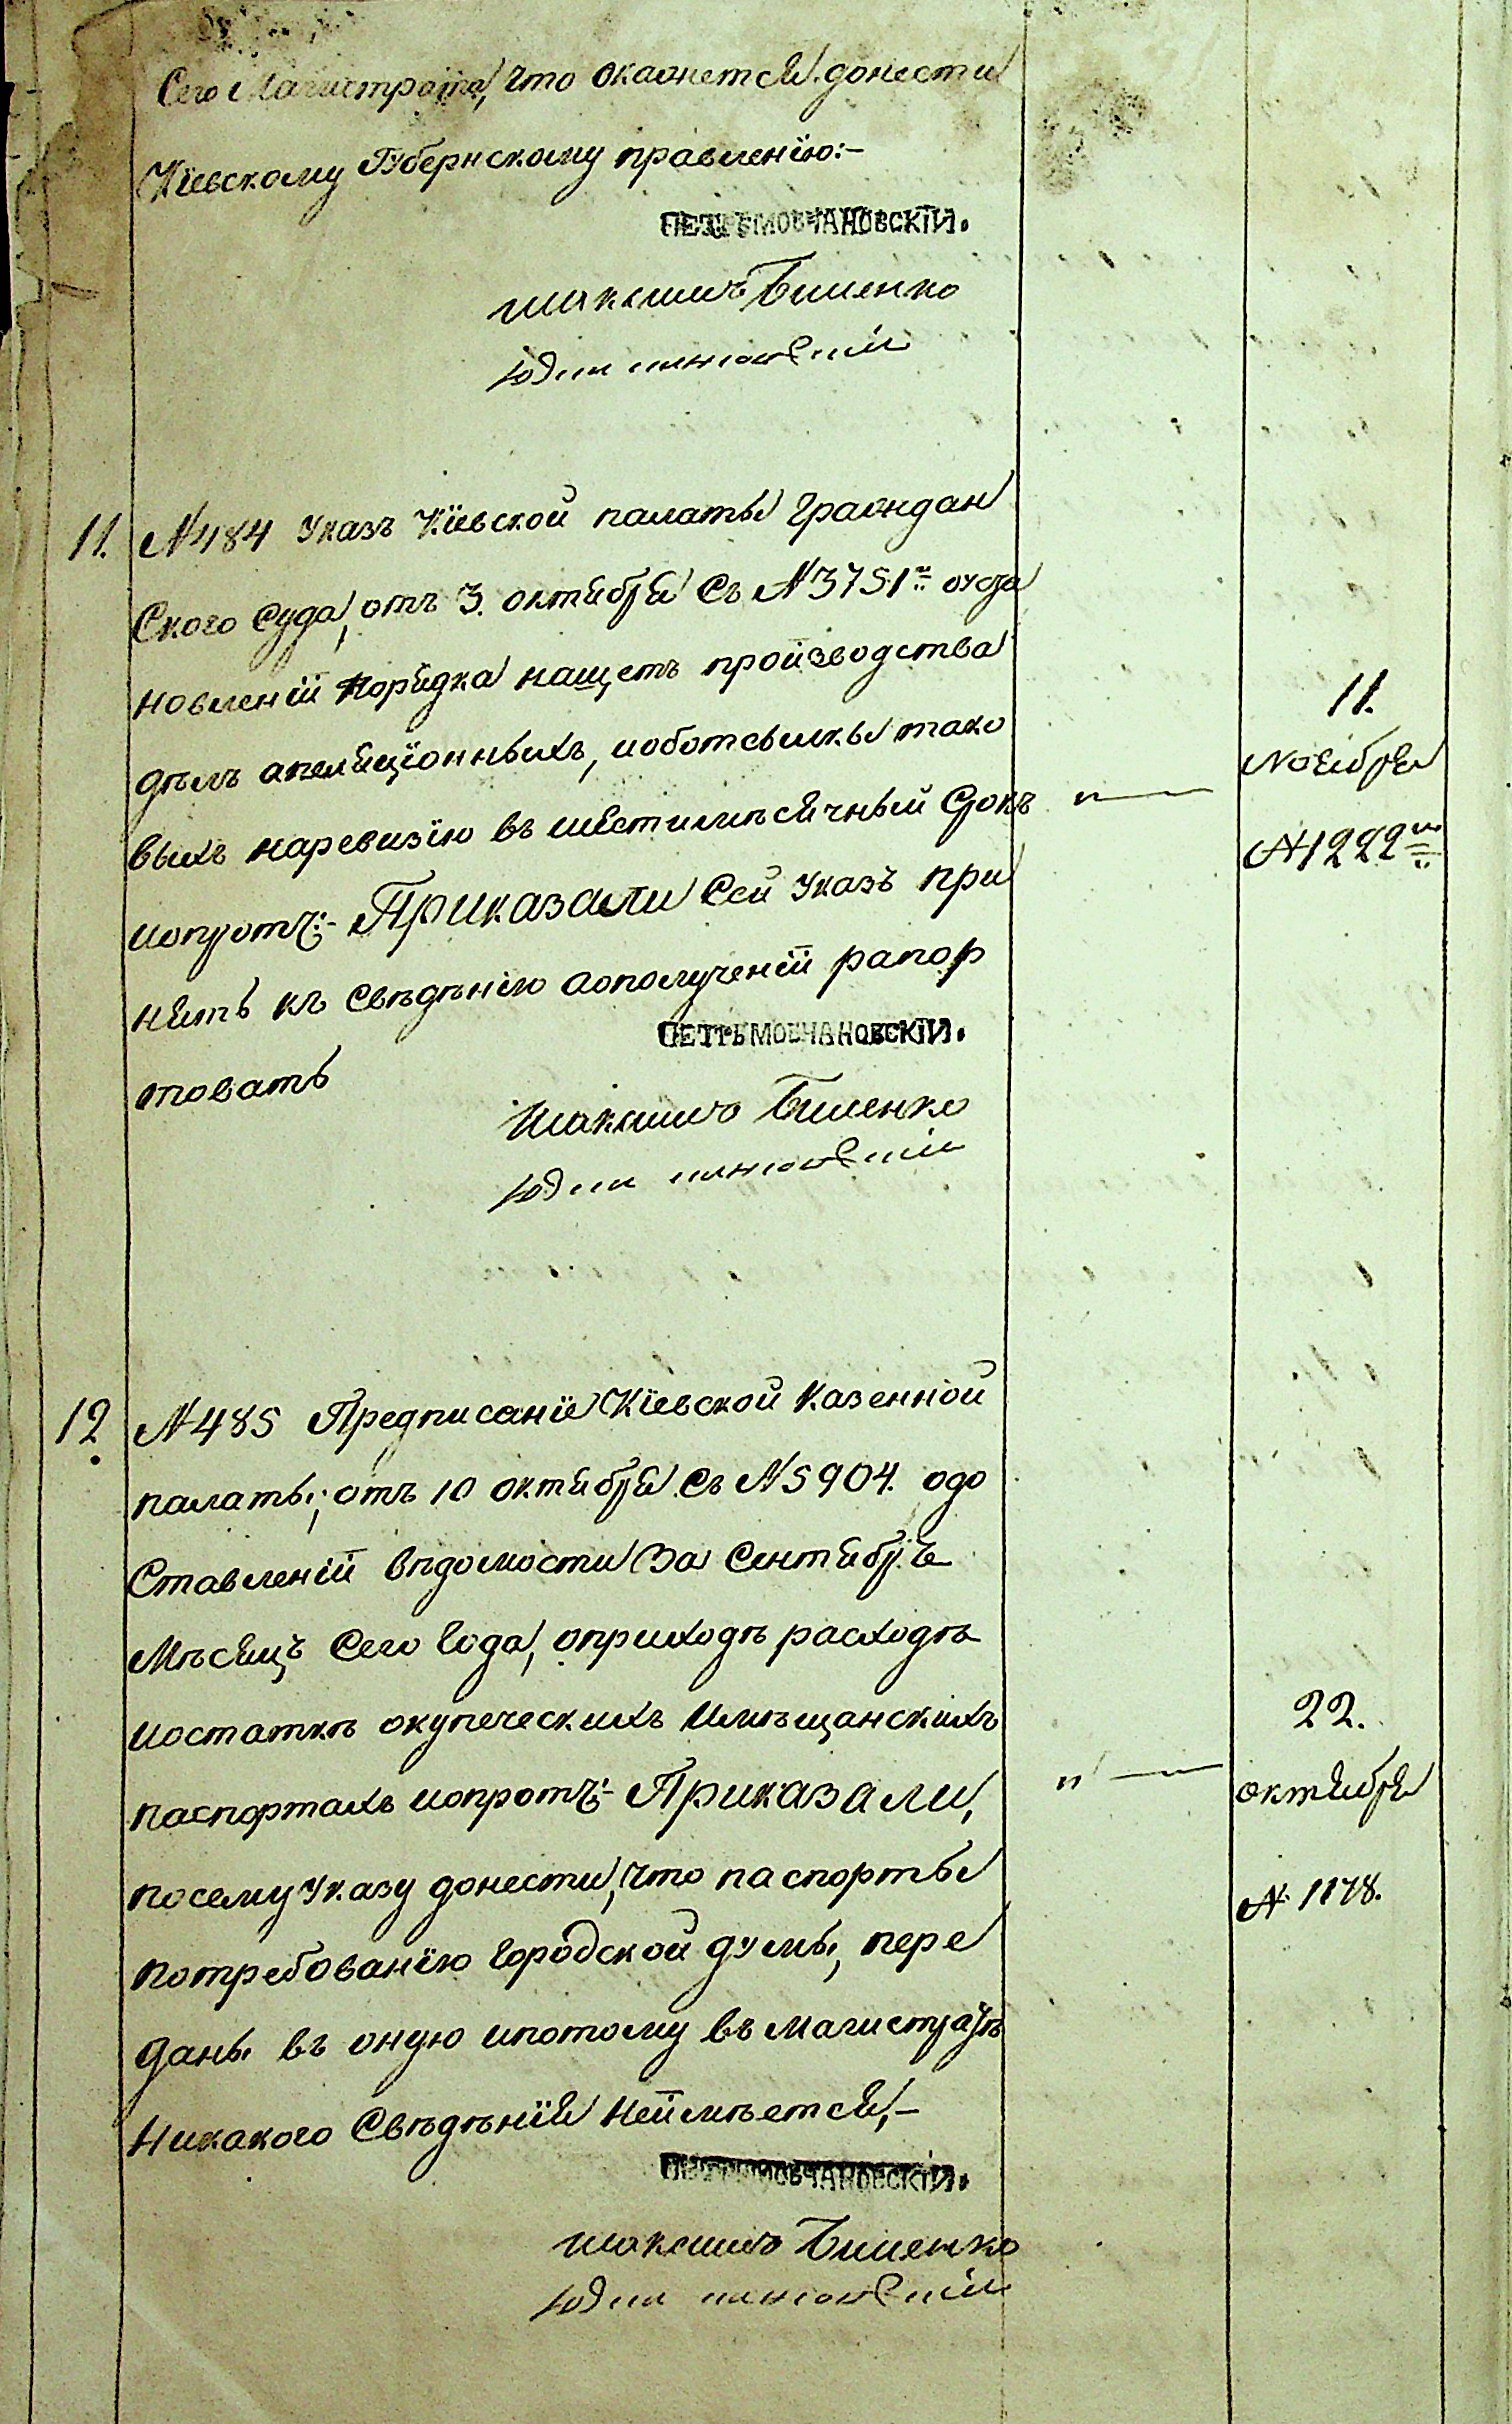 Сего Магистрата, что окажется донести
Кїевскому Губернскому правленїю:-
ПЕТРЪ МОВЧАНОВСКIЙ.
Максимъ Биленко
11. №484 Указъ Кїевской палаты граждан
Ского Суда, отъ 3. октября Съ №3751м оуста
новленїй порядка нащетъ произзводства
дѣлъ апеляцїонныхъ, иоботсылкы тако
выхъ наревизїю въ шестимѣсячный Срокъ
ипротч:- Приказали Сей Указъ при
нять къ Свѣдѣнїю аополученїй рапор
товать
ПЕТРЪ МОВЧАНОВСКIЙ.
Максимъ Биленко
11.
Ноября
№1222м
12. №485 Предписанїе Кїевской Казенной
палаты; отъ 10 октября Съ №5904. одо
Ставленїй вѣдомости За Сентябръ
Мѣсяцъ Сего Года, оприходѣ расходѣ
иостаткѣ окупеческихъ имѣщанскихъ
паспортахъ ипротч:- Приказали,
посему Указу донести, что паспорты
потребованїю Городской думы, пере
даны въ оную ипотому въ магистратѣ
Никакого Свѣдѣнїя неимѣется,-
ПЕТРЪ МОВЧАНОВСКIЙ.
Максимъ Биленко
22.
октября
№ 1178.